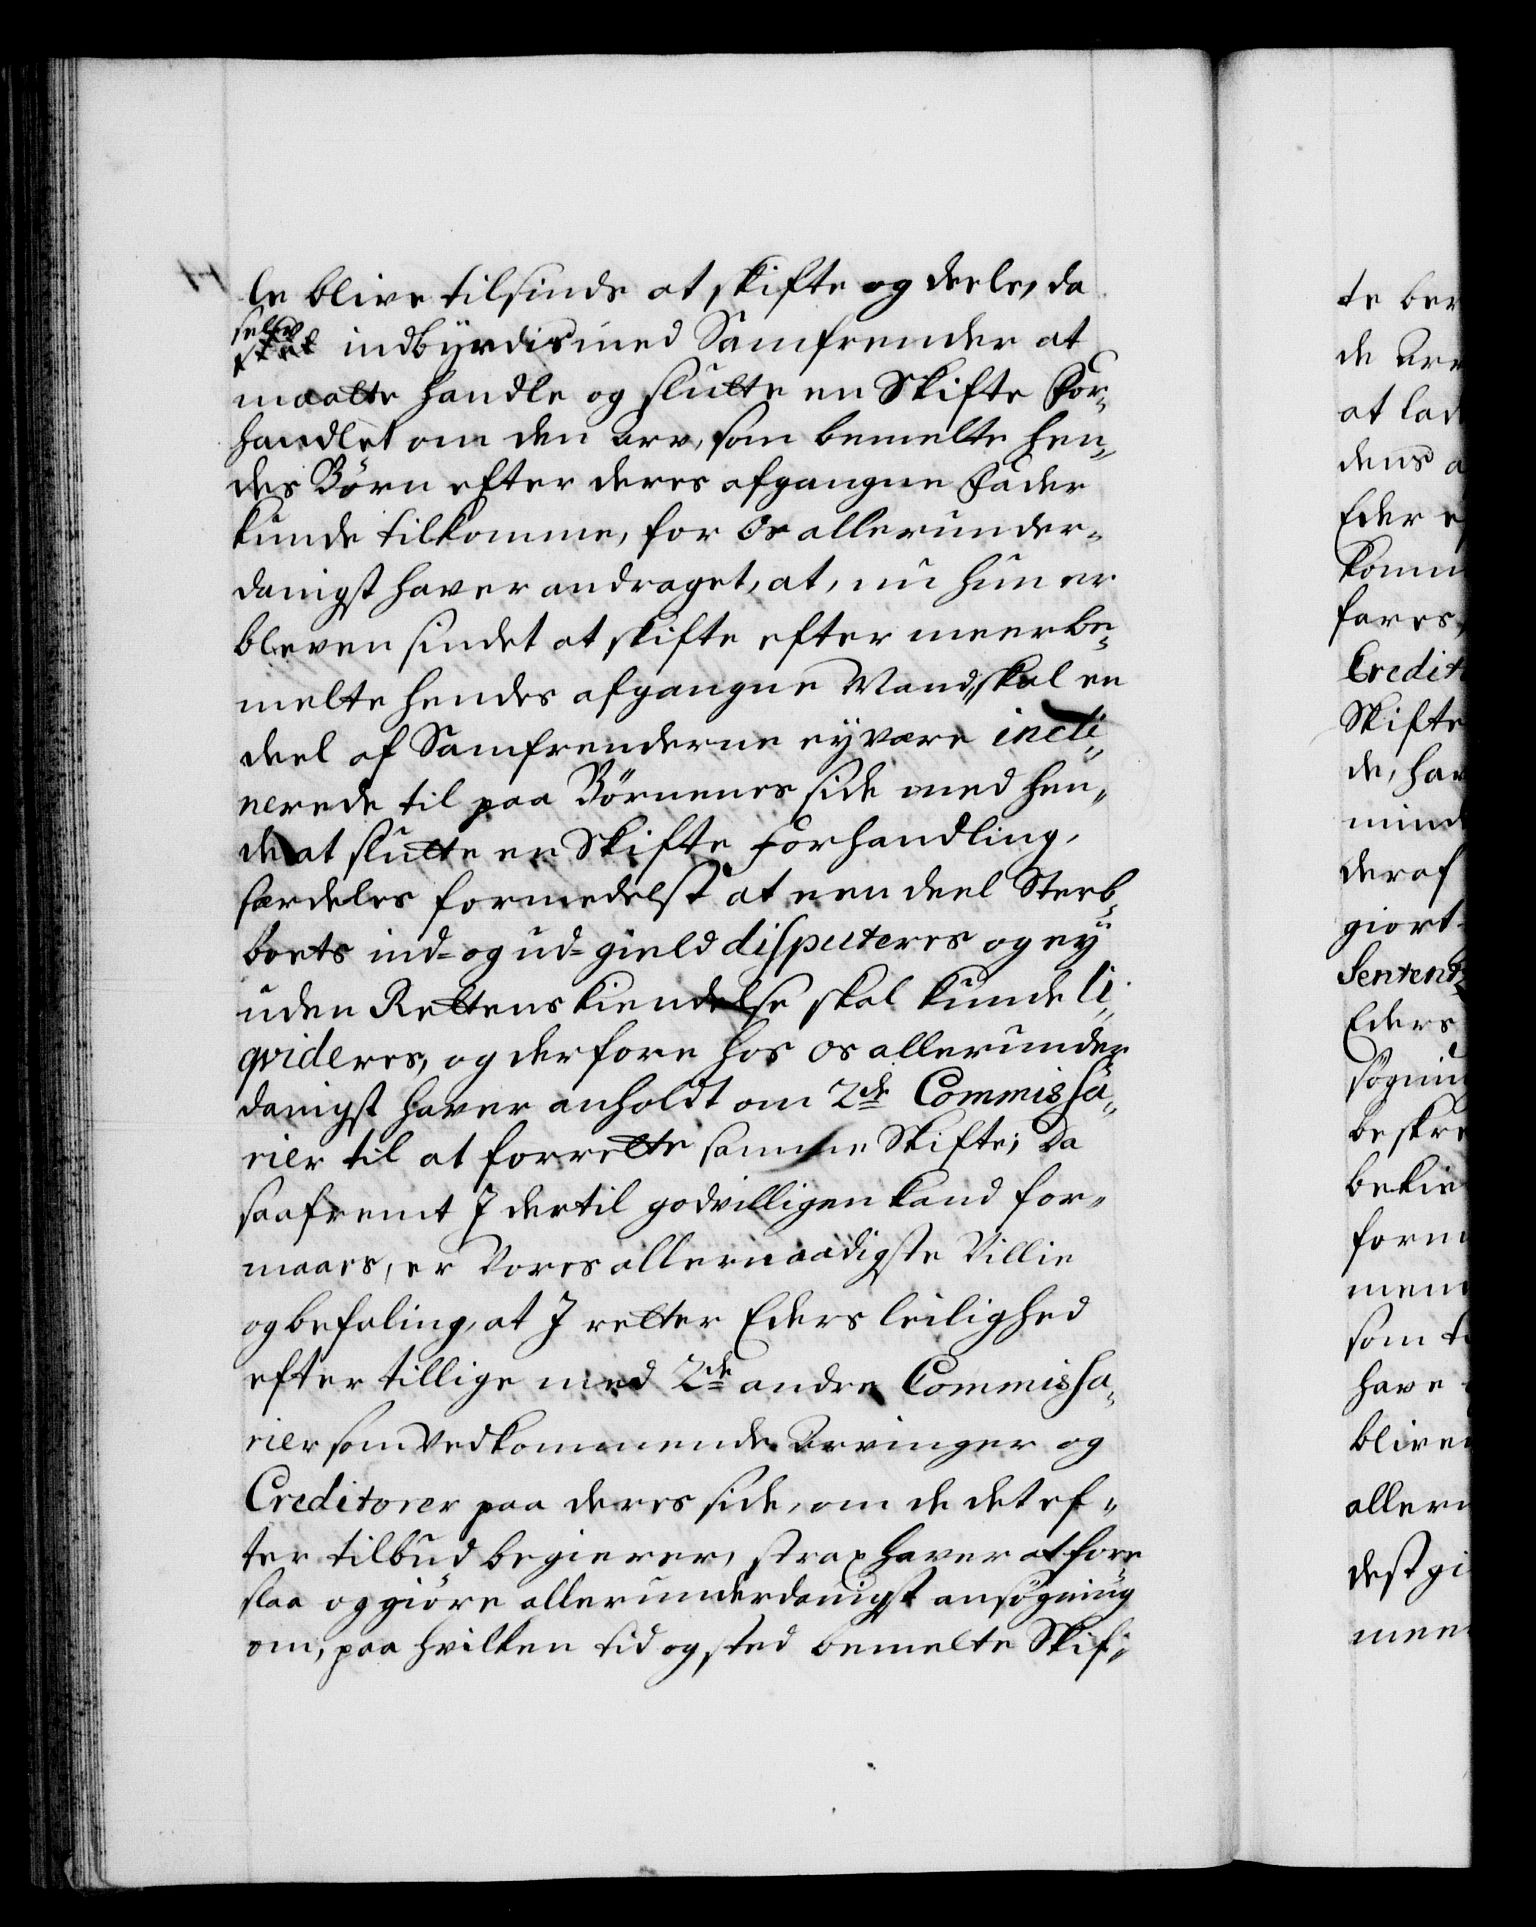 le blive tilsinds at skifte og deele, da
selv
indbyrdis med Samfrender at
maatte handle og slutte en Skifte For-
handlet om den Arv, som bemelte hen-
des Börn efter deres afgangne Fader
kunde tilkomme, for Os allerunder-
danigst haver andraget, at, nu hun er
bleven sindet at skifte efter meerbe-
melte hendes afgangne Mand, skal en
deel af Samfrenderne ey være incli-
nerede til paa Börnenes side med hen-
de at slutte en Skifte Forhandling,
særdeles formedelst at een deel Sterb-
boets ind- og ud-gield disputeres og ey
uden Rettens kiendelse skal kunde li-
qvideres, og derfore hos os allerunder-
danigst haver anholdt om 2de Commissa-
rier til at forrette samme Skifte; Da
saafremt I dertil godvilligen kand for-
maaes, er Vores allernaadigste Villie
og befaling, at I retter Eders leilighed
efter tillige med 2de andre Commissa-
rier som Vedkommende Arvinger og
Creditorer paa deres side, om de det ef-
ter tilbud begierer, strax haver at fore-
slaa og giöre allerunderdanigst ansögning
om, paa hvilken tid og sted bemelte Skif-
te ber
de Arv
at lad
dens a
Eder e
komm
fares,
Credit
Skifte
de, hav
mind
deraf
giort
Sentent
Eders
sögning
beskre
bekie
form
men
som t
have
blive
allern
dest gi
meen